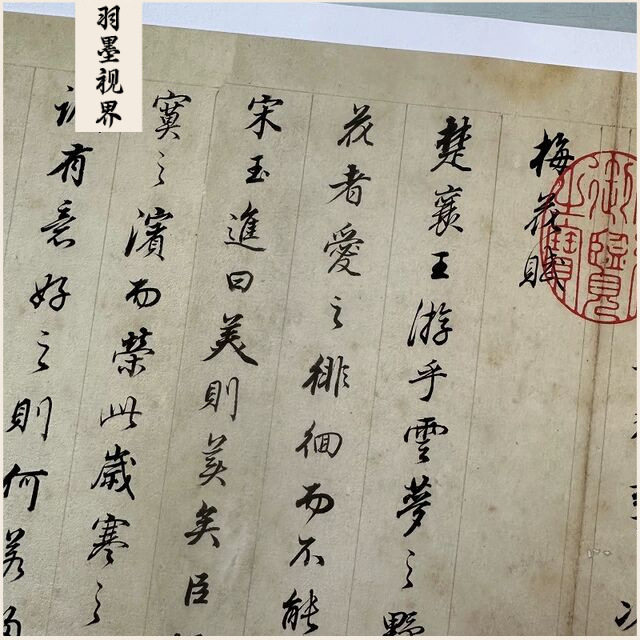 羽墨视界
梅花賦
楚襄王游乎雲夢之野
花者愛之徘徊而不能
宋玉進曰美則美矣臣
寞之濱而榮此歲寒之
有意好之則何若
御覽之寶